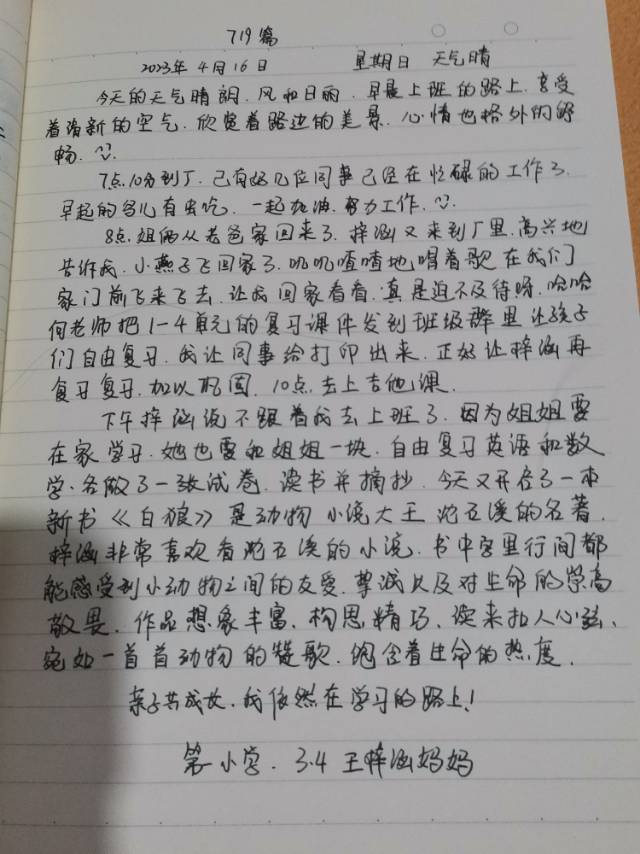 719篇
2023年4月16日 星期日 天气晴
今天的天气晴朗.风和日丽.早晨上班的路上.享受
着清新的空气.欣赏着路边的美景.心情也格外的舒
畅.
7点10分到厂.已有好几位同事已经在忙碌的工作了.
早起的鸟儿有虫吃.一起加油.努力工作.
8点.姐俩从老爸家回来了.梓涵又来到厂里.高兴地
告诉我.小燕子飞回家了.叽叽喳喳地唱着歌在我们
家门前飞来飞去.让我回家看看.真是迫不及待呀.哈哈
何老师把1-4单元的复习课件发到班级群里让孩子
们自由复习.我让同事给打印出来.正好让梓涵再
复习复习.加以巩固.10点.去上吉他课.
下午梓涵说不跟着我去上班了.因为姐姐要
在家学习.她也要和姐姐一块.自由复习英语和数
学.各做了一张试卷.读书并摘抄.今天又开启了一本
新书《白狼》是动物小说大王沈石溪的名著.
梓涵非常喜欢看沈石溪的小说.书中字里行间都
能感受到小动物之间的友爱.挚诚以及对生命的崇高
敬畏.作品想象丰富.构思精巧.读来扣人心弦.
宛如一首首动物的赞歌.饱含着生命的热度.
亲子共成长.我依然在学习的路上!
第一小学.3.4王梓涵妈妈